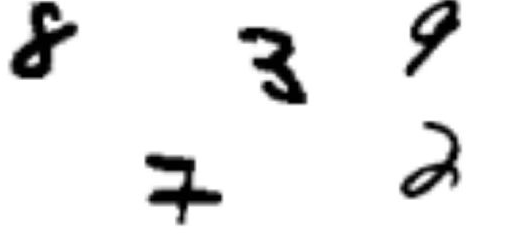 8 3 9
7 2